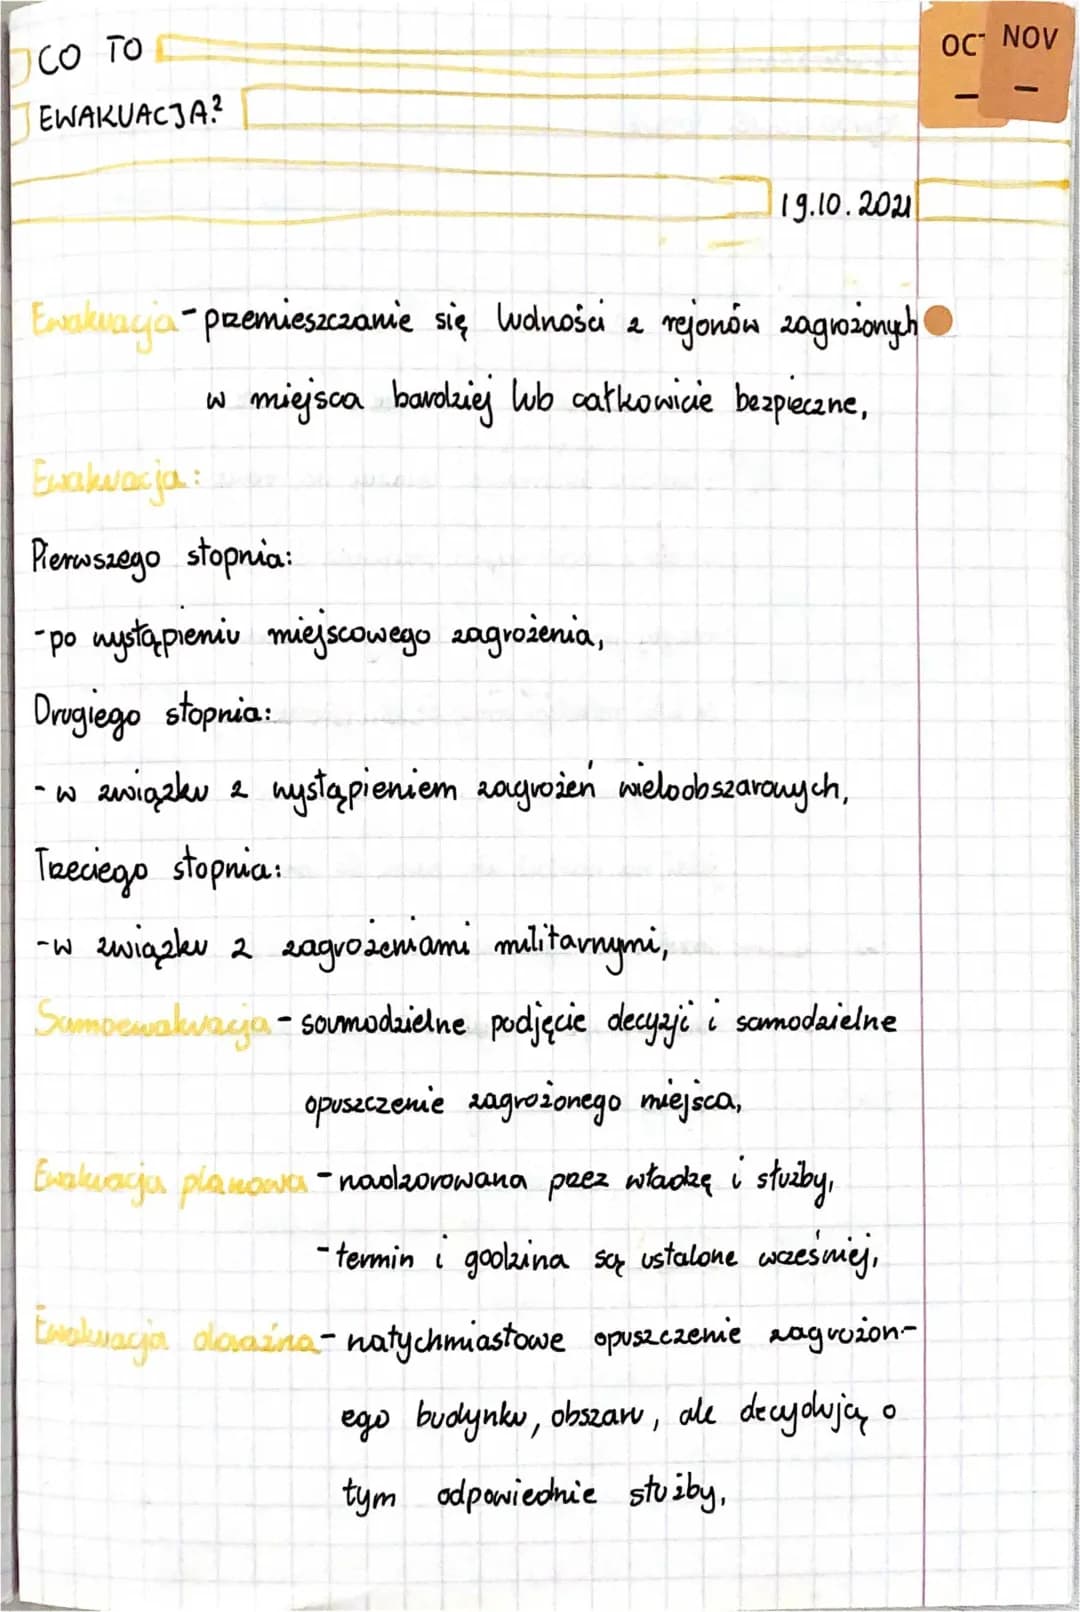 CO TO
EWAKUACJA?
OCT NOV
19.10.2021
Ewakuacja - przemieszczanie się ludności z rejonów zagrożonych
w miejsca bardziej lub całkowicie bezpieczne,
Ewakuacja:
Pierwszego stopnia:
- po wystąpieniu miejscowego zagrożenia,
Drugiego stopnia:
- w związku z wystąpieniem zagrożeń wieloobszarowych,
Trzeciego stopnia:
- w związku z zagrożeniami militarnymi,
Samoewakuacja - samodzielne podjęcie decyzji i samodzielne
opuszczenie zagrożonego miejsca,
Ewakuacja planowa - nadzorowana przez władzę i służby,
- termin i godzina są ustalone wcześniej,
Ewakuacja doraźna - natychmiastowe opuszczenie zagrożon-
ego budynku, obszaru, ale decydują o
tym odpowiednie służby,